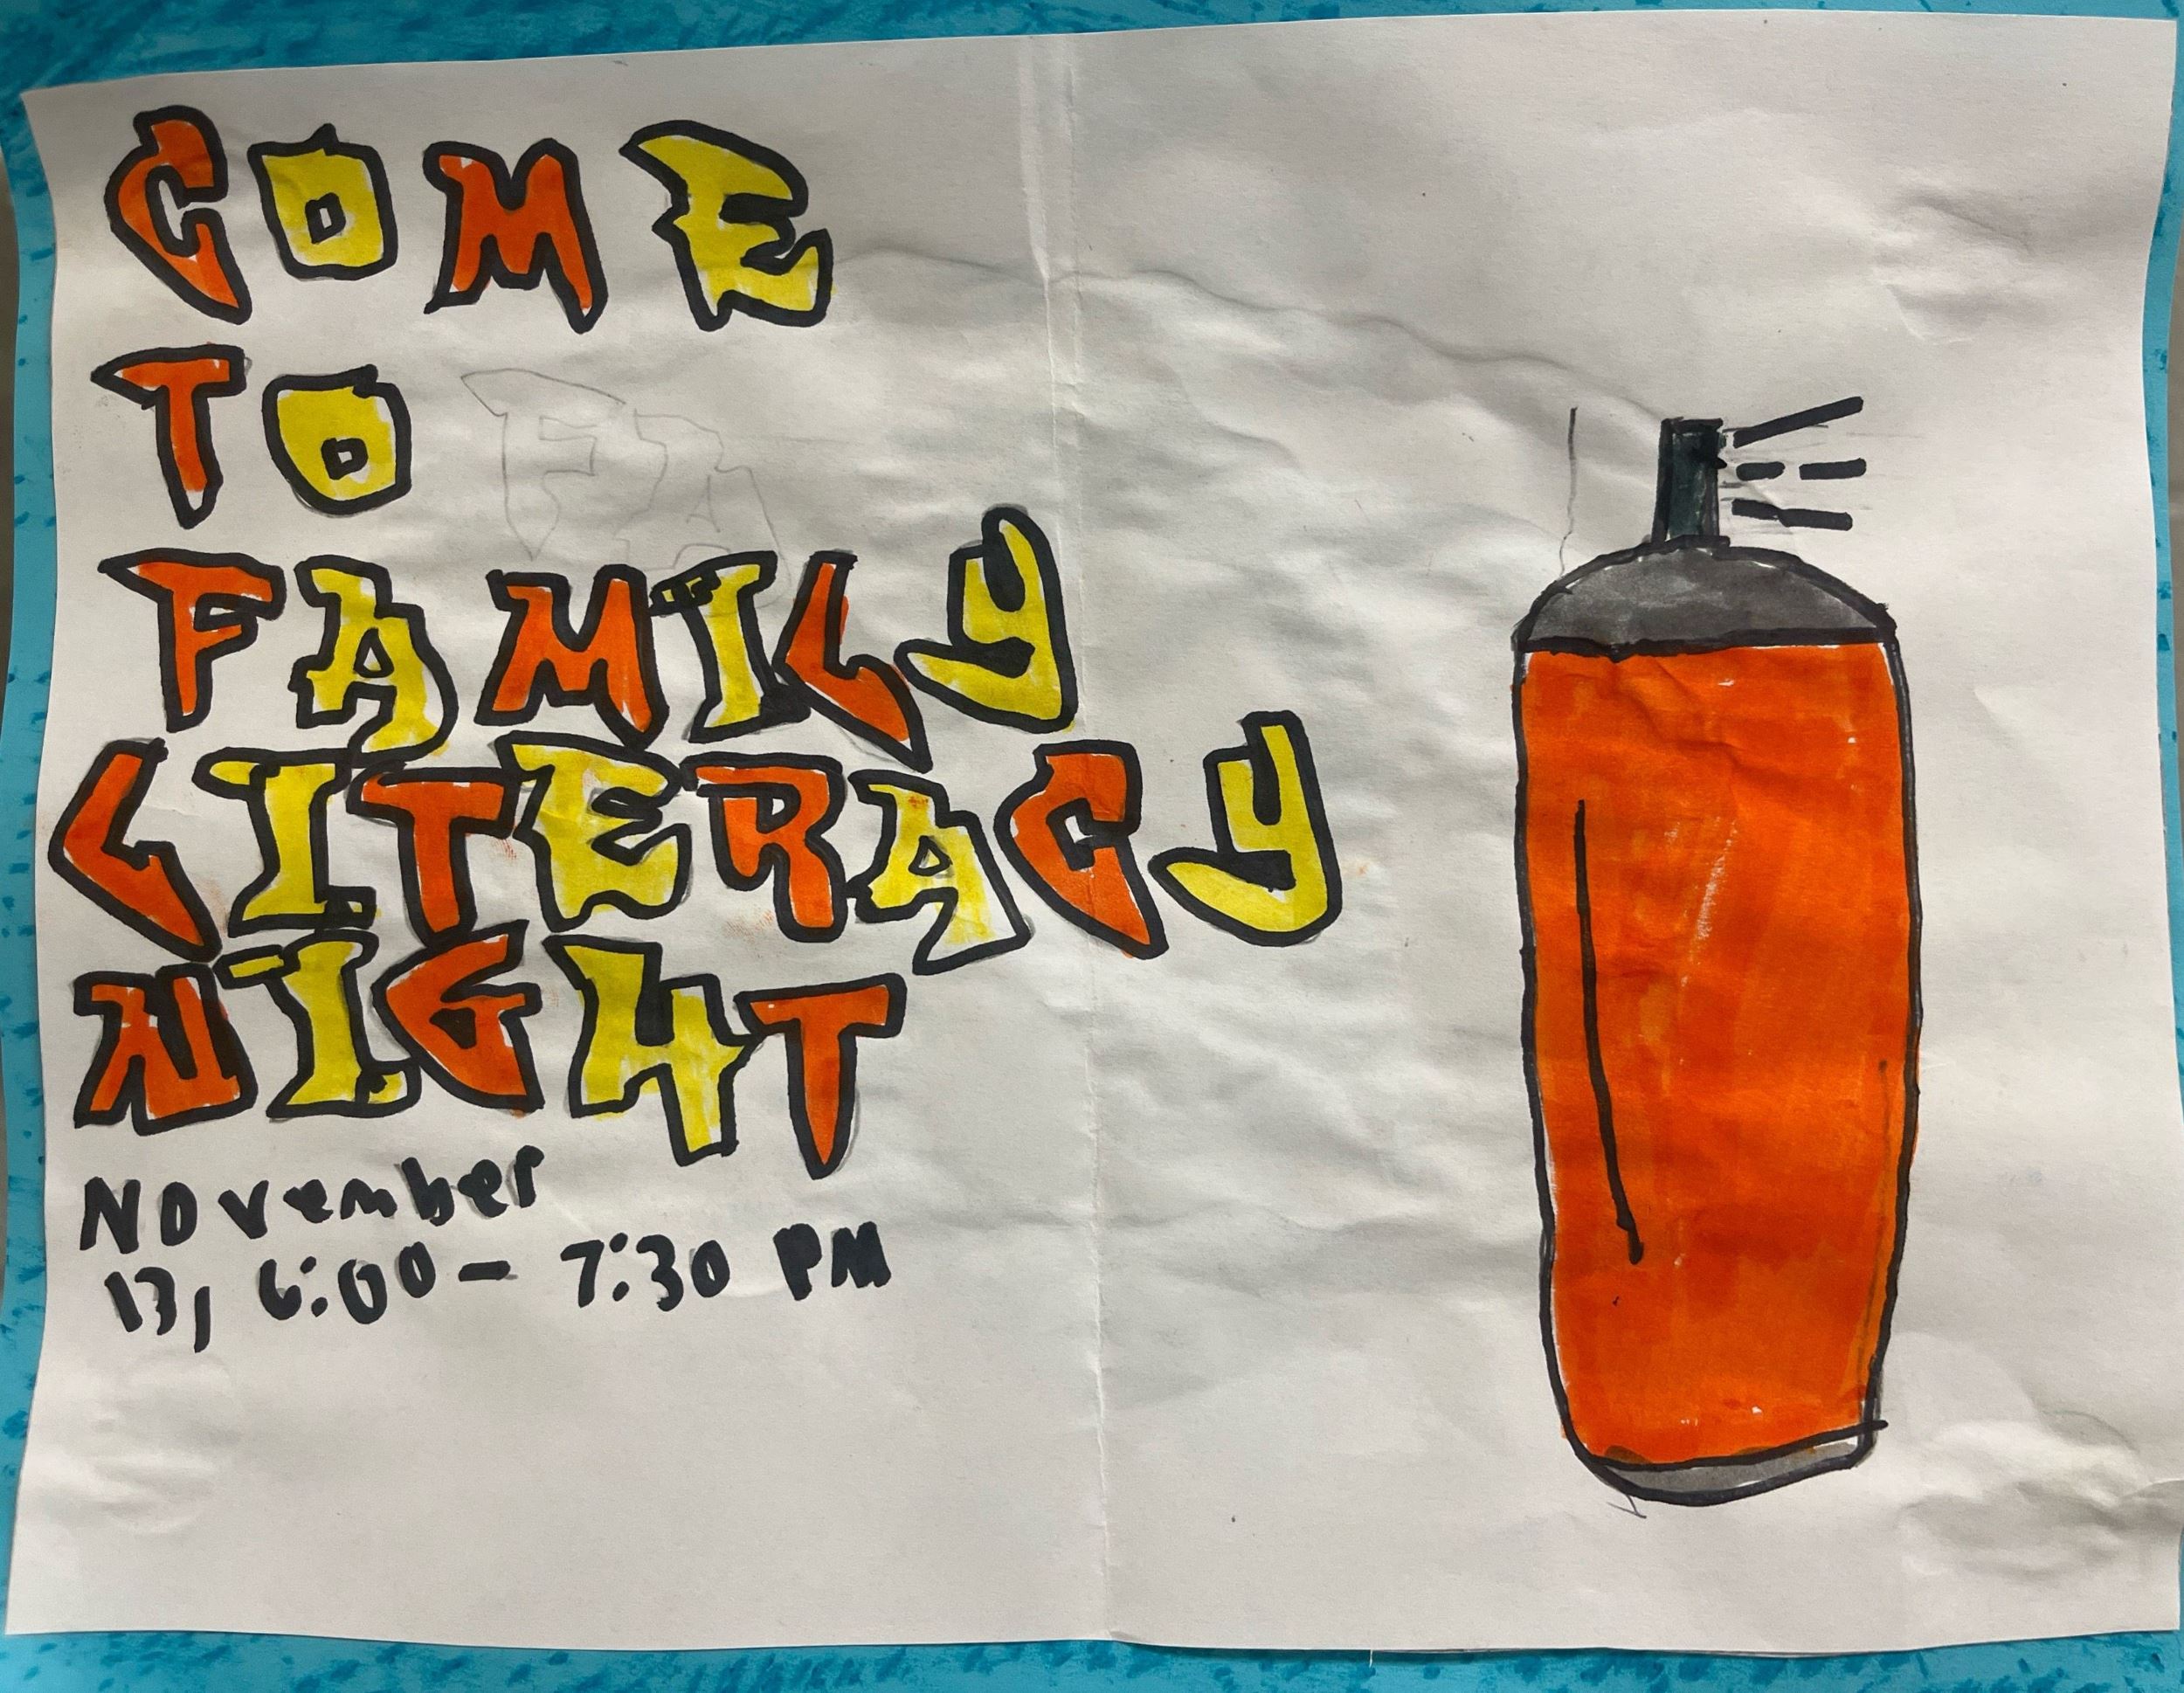 COME
TO FA
FAMILY
LITERACY
NIGHT
November
13, 6:00 - 7:30 PM